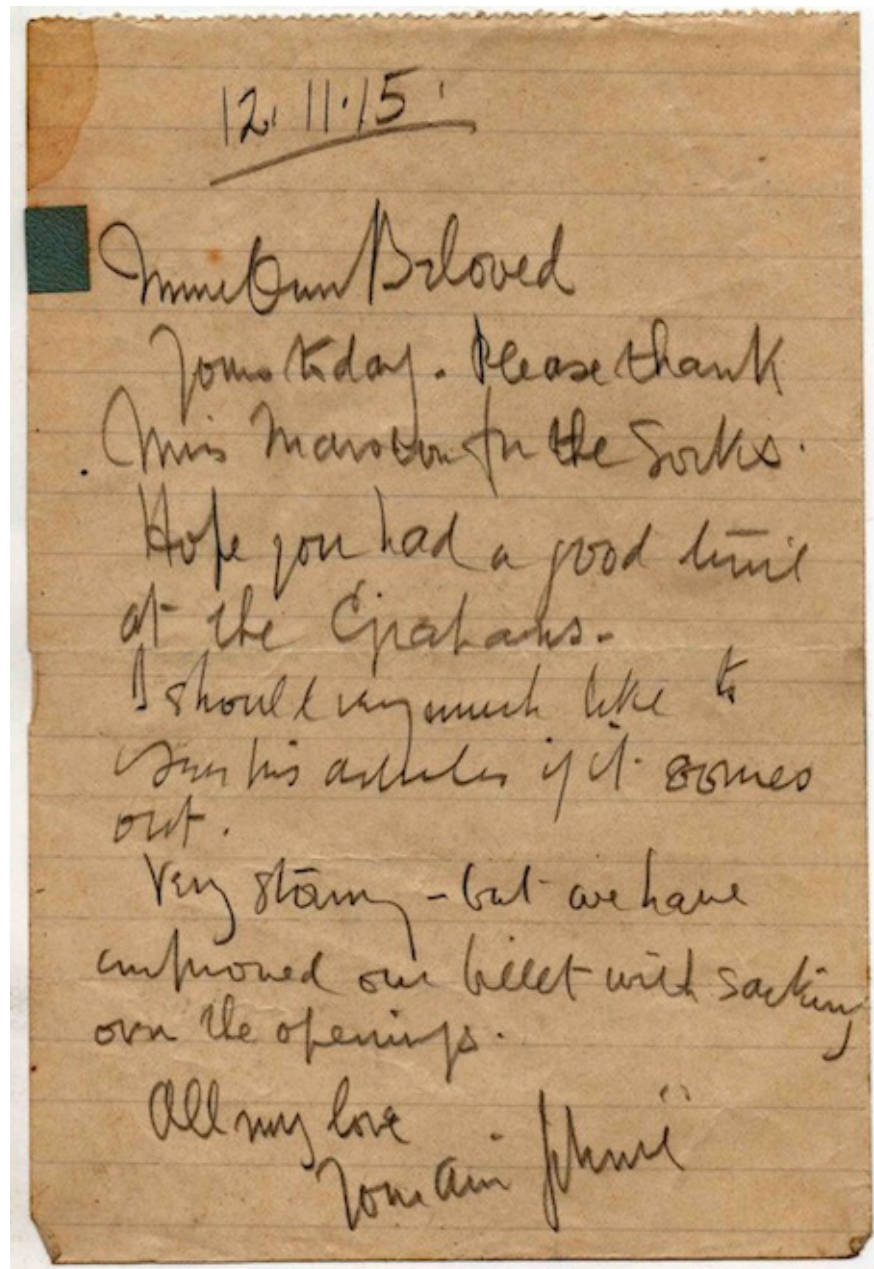 12.11.15.
Mine Own Beloved
Yours today. Please thank
Miss Marston for the Socks.
Hope you had a good time
at the Grahams.
I should very much like to
his articles if it comes
out.
Very stormy - but we have
improved our billet with sacking
over the openings.
All my love
Your Ain Johnnie